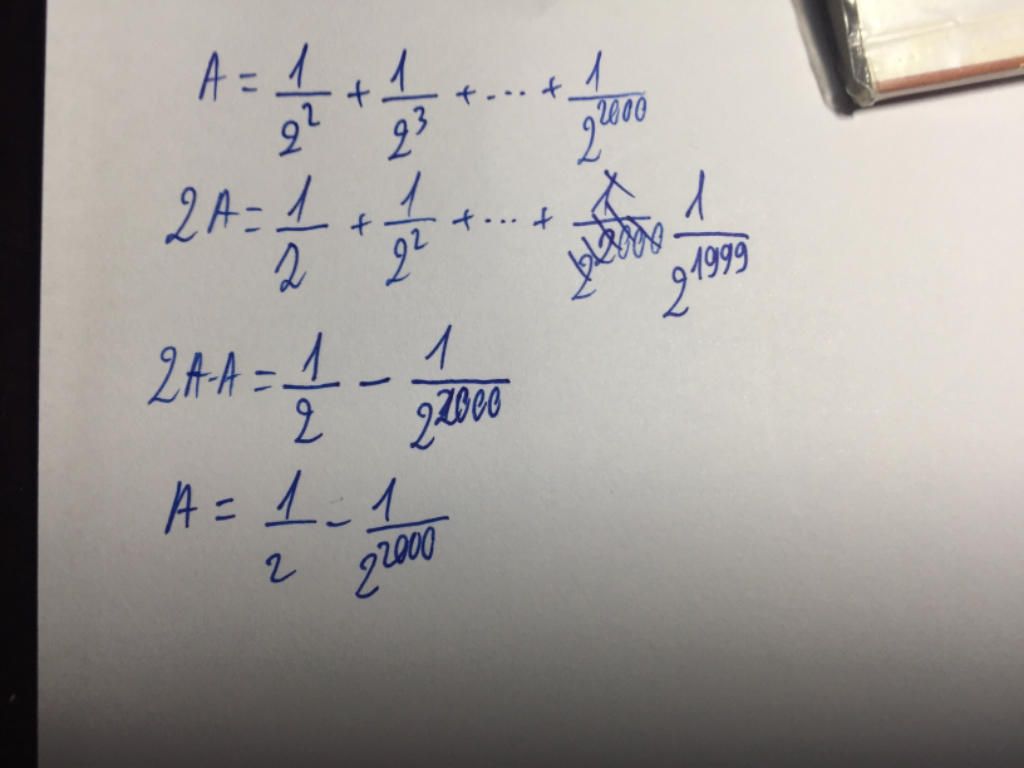 A = 1/2^2 + 1/2^3 + ... + 1/2^2000
2A = 1/2 + 1/2^2 + ... + 1/2^2000 1/2^1999
2A-A = 1/2 - 1/2^2000
A = 1/2 - 1/2^2000